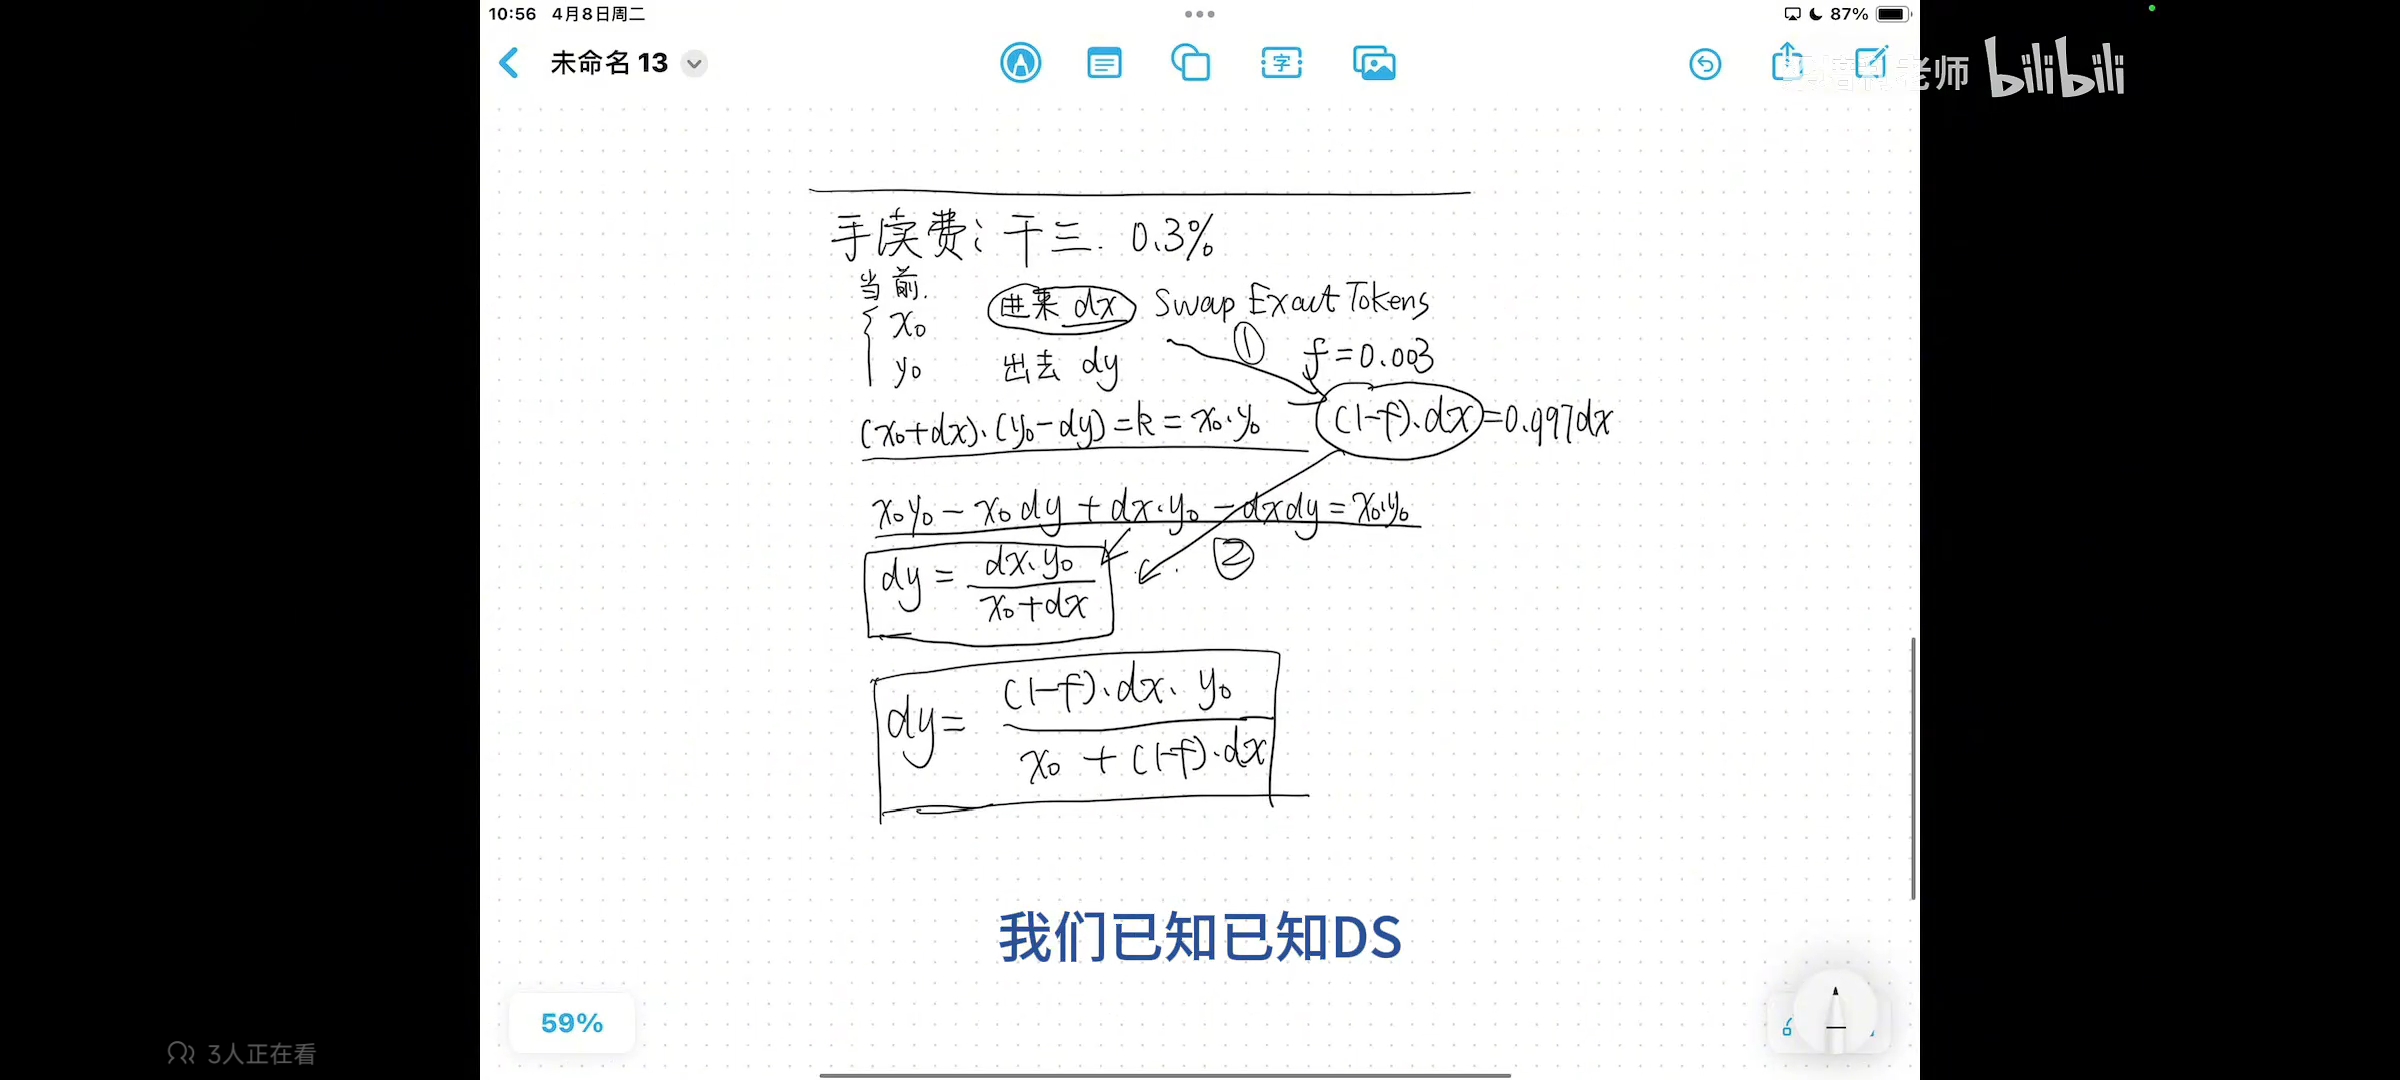 10:56 4月8日周二
87%
未命名 13
字
老师 bilibili
手续费: 千三. 0.3%
当前.
x₀ 进来 dx Swap Exact Tokens
① f=0.003
y₀ 出去 dy
(x₀+dx)·(y₀-dy)=k=x₀·y₀ (1-f)·dx=0.997dx
x₀y₀-x₀dy+dx·y₀-dxdy=x₀·y₀
②
dy = dx·y₀ / x₀+dx
dy= (1-f)·dx·y₀ / x₀+(1-f)·dx
我们已知已知DS
59%
3人正在看